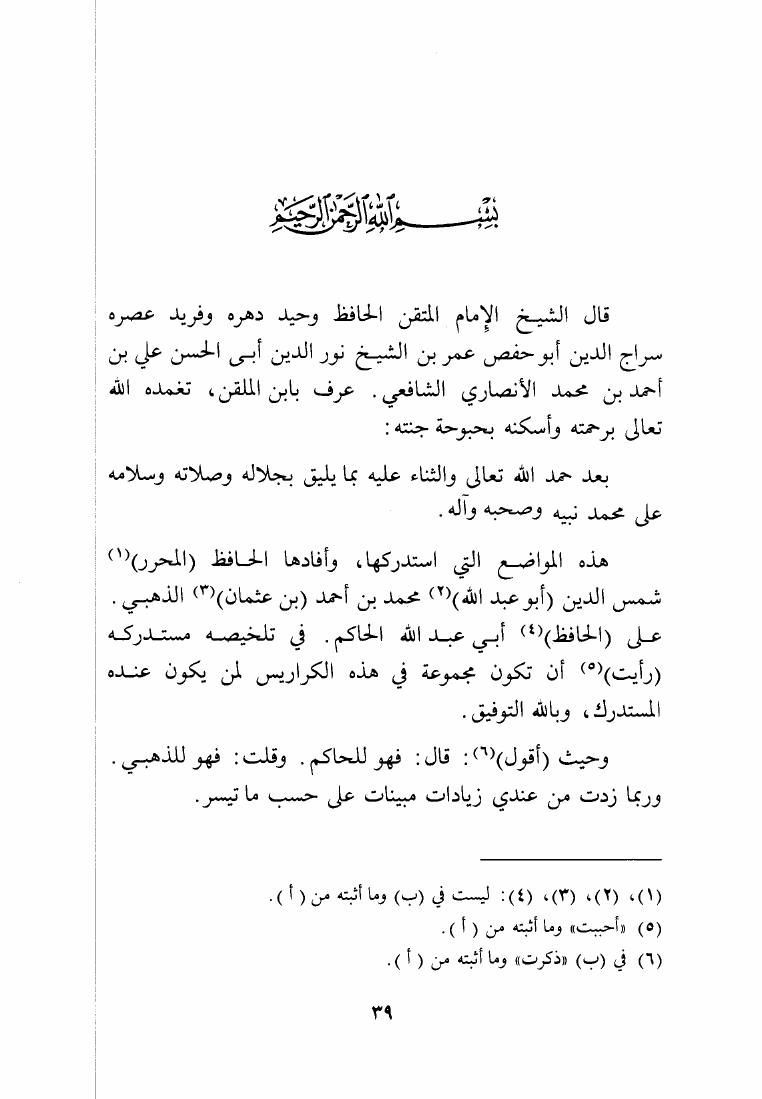 بسم الله الرحمن الرحيم
قال الشيخ الإمام المتقن الحافظ وحيد دهره وفريد عصره
سراج الدين أبو حفص عمر بن الشيخ نور الدين أبي الحسن علي بن
أحمد بن محمد الأنصاري الشافعي. عرف بابن الملقن، تغمده الله
تعالى برحمته وأسكنه بحبوحة جنته:
بعد حمد الله تعالى والثناء عليه بما يليق بجلاله وصلاته وسلامه
على محمد نبيه وصحبه وآله.
هذه المواضع التي استدركها، وأفادها الحافظ (المحرر)(١)
شمس الدين (أبو عبد الله)(٢) محمد بن أحمد (بن عثمان)(٣) الذهبي.
على (الحافظ)(٤) أبي عبد الله الحاكم. في تلخيصه مستدركه
(رأيت)(٥) أن تكون مجموعة في هذه الكراريس لمن يكون عنده
المستدرك، وبالله التوفيق.
وحيث (أقول)(٦): قال: فهو للحاكم. وقلت: فهو للذهبي.
وربما زدت من عندي زيادات مبينات على حسب ما تيسر.
(١)، (٢)، (٣)، (٤): ليست في (ب) وما أثبته من ( أ ).
(٥) «أحببت» وما أثبته من ( أ ).
(٦) في (ب) «ذكرت» وما أثبته من ( أ ).
٣٩